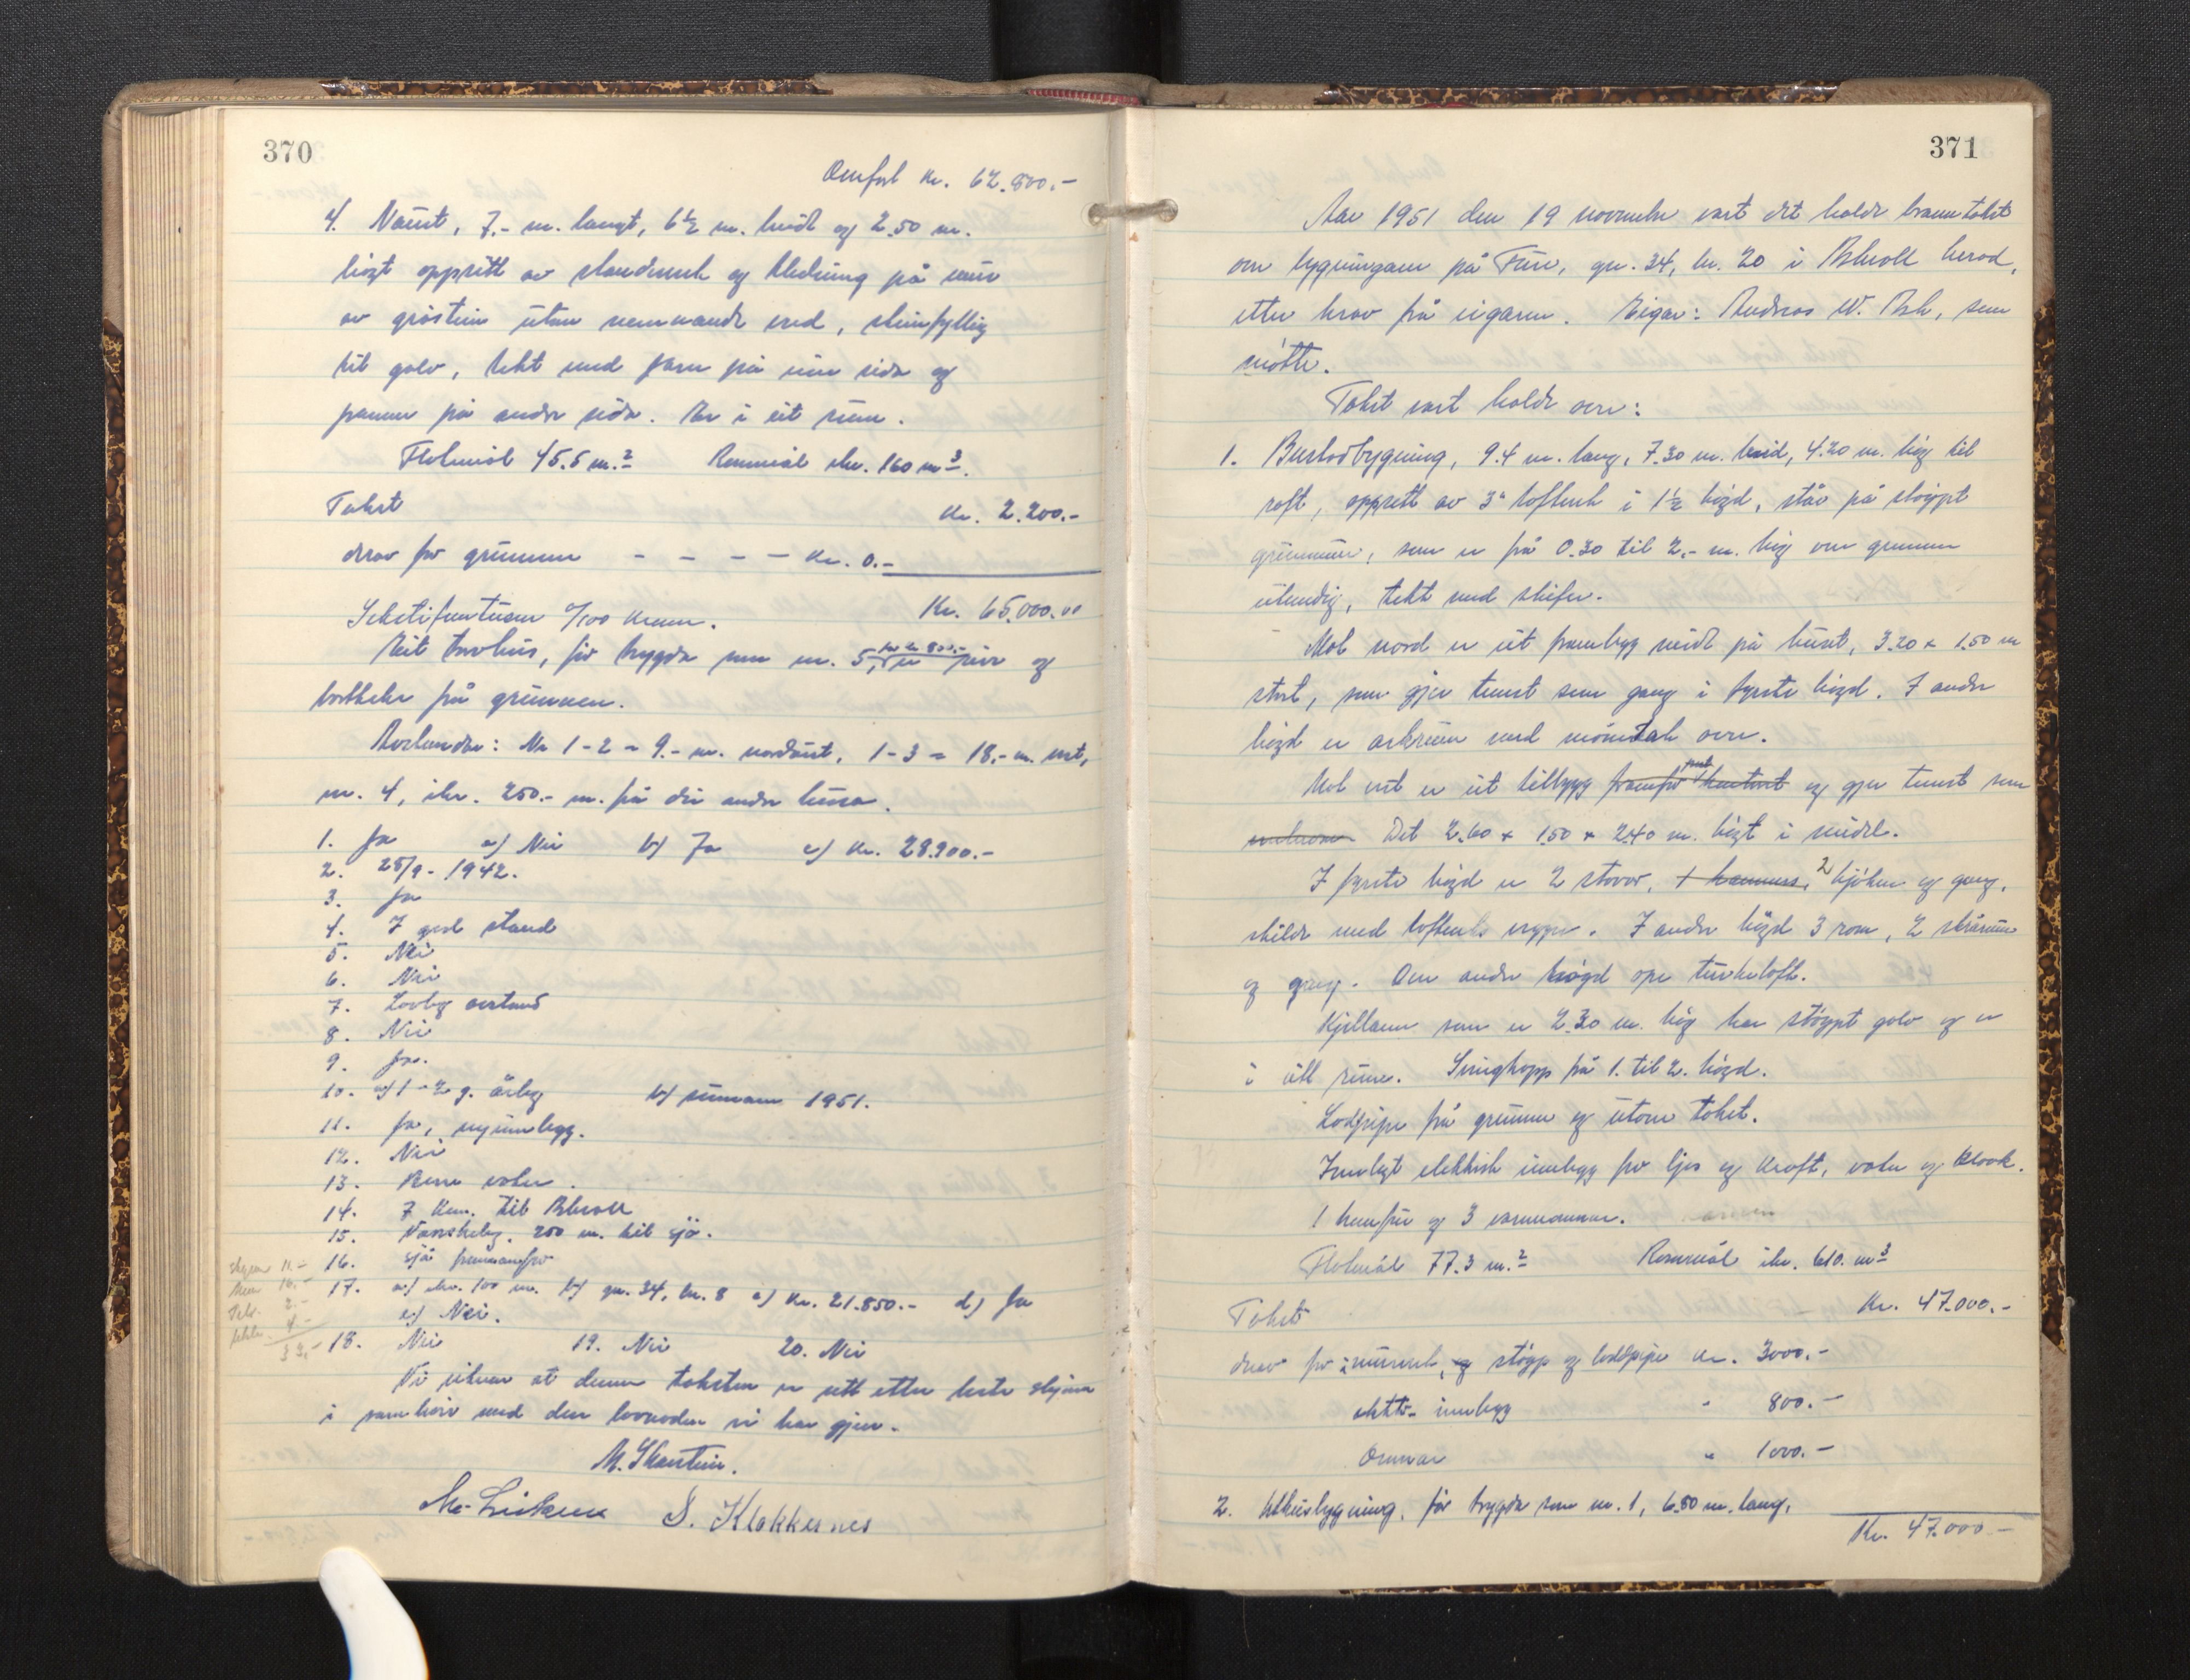 370
Omført kr. 62.800.-
4. Naust, 7.- m. langt, 6½ m. breidt og 2.50 m.
høgt oppsett av standverk og kledning på mur
av gråstein utan nemnande verd, steinfylling
til golv, tekt med jarn på eine sida og
panner på andre sida. Er i eit rum.
Flatemål 45.5 m.² Rommål ikr. 160 m³.
Takst kr. 2.200.-
derav for grunnmur - - - - kr. 0.-
Sekstifemtusen 0/100 kroner. Kr. 65.000.00
Eit torvhus, før trygda som nr. 5, for kr 800.- er reve og
bortteke frå grunnen.
Avstandar: Nr 1-2 = 9.- m. nordaust, 1-3 = 18.- m. vest,
nr. 4, ikr. 250.- m. frå dei andre husa.
1. Ja a) Nei b) Ja c) kr. 28.900.-
2. 25/9 - 1942.
3. Ja
4. I god stand
5. Nei
6. Nei
7. Lovleg avstand
8. Nei
9. Ja.
10. a) 1-2 g. årleg b) sumaren 1951.
11. Ja, nyinnlegg.
12. Nei
13. Berre vatn.
14. 7 km. til Askvoll
15. Vanskeleg. 250 m. til sjø.
16. sjå framanfor
17. a) ikr. 100 m. b) gn. 34, bn. 8 c) kr. 21.850.- d) Ja
e) Nei.
18. Nei 19. Nei 20. Nei
Vi vitnar at denne taksten er sett etter beste skjøn
i samhøve med den lovnaden vi har gjeve.
M. Skartein.
S. Klakkernes
371
Aar 1951 den 19 november vart det halde branntakst
over bygningane på Fure, gn. 34, bn. 20 i Askvoll herad,
etter krav frå eigaren. Eigar: Andreas W. Ask, som
møtte.
Takst vart halde over:
1. Bustadbygning, 9.4 m. lang, 7.30 m. breid, 4.20 m. høg til
raft, oppsett av 3" tofteverk i 1½ høgd, står på støypt
grunnmur, som er frå 0.30 til 2.- m. høg over grunnen
utvendig, tekt med skifer.
Mot nord er eit frambygg midt på huset, 3.20 x 1.50 m
stort, som gjer tenest som gang i fyrste høgd. I andre
høgd er arkrum med mønetak over.
Mot vest er eit tilbygg og gjer tenest som
Det 2.60 x 1.50 x 2.40 m. høgt i midte.
I fyrste høgd er 2 stover, 1 kammers, 2 kjøken og gang,
skilde med tofteverks vegger. I andre høgd 3 rom, 2 skrårum
og gang. Over andre høgd ope tørkeloft.
Kjellaren som er 2.30 m. høg har støypt golv og er
i ått rum. Svingtropp frå 1. til 2. høgd.
Loddpipe frå grunnen og utom takst.
Innlagt elektrisk innlegg for ljos og kraft, vatn og kloakk.
1 komfyr og 3 varmeomnar.
Flatemål 77.3 m.² Rommål ikr. 610. m³
Takst Kr. 47.000.-
derav for: murverk, støyp og loddpipe kr. 3000.-
elektr. innlegg " 800.-
Omnar " 1000.-
2. Uthusbygning, før trygda som nr. 1, 6.50 m. lang,
Kr. 47.000.-